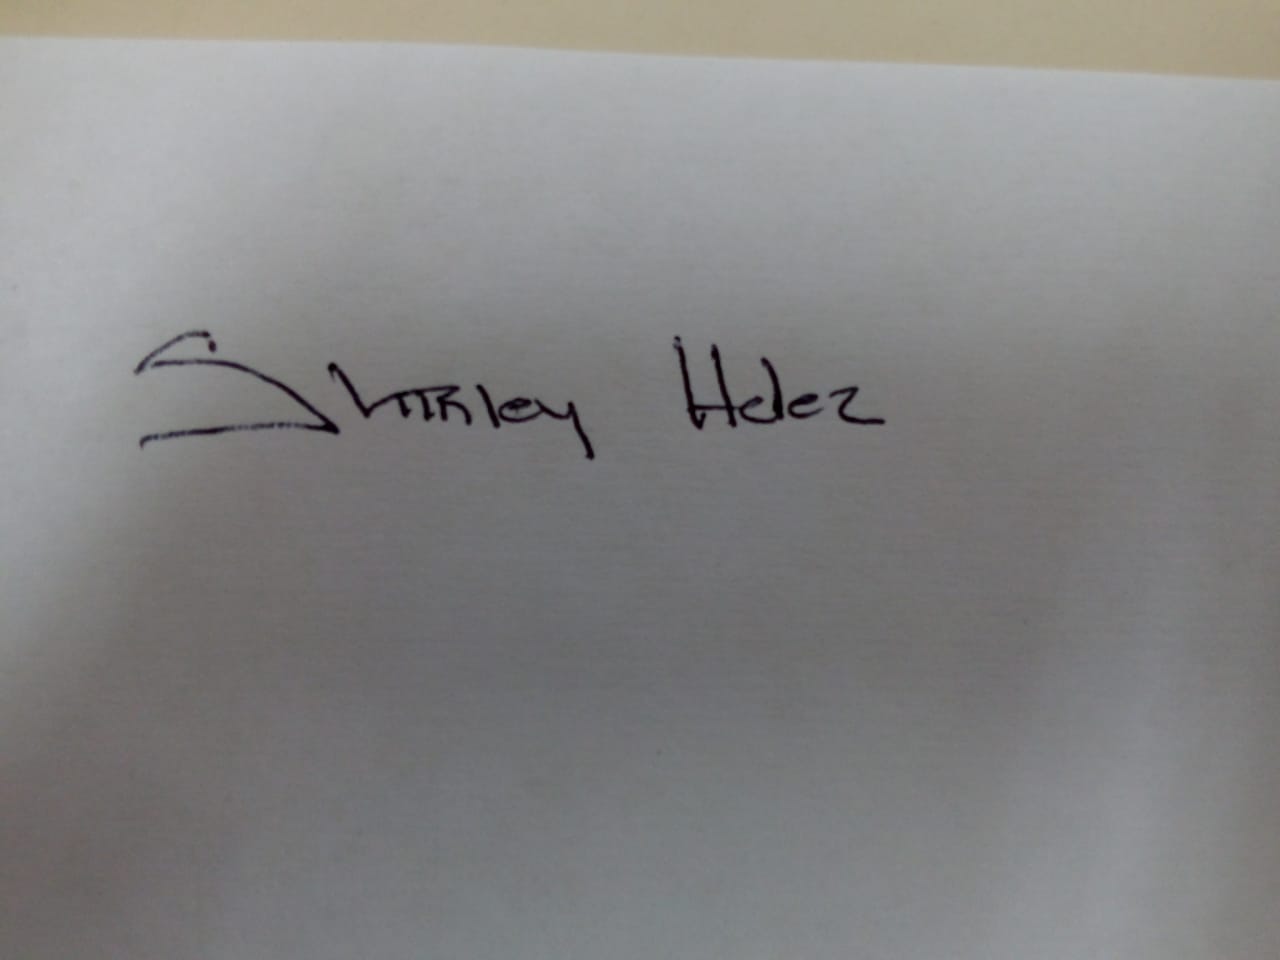 Shirley Helez